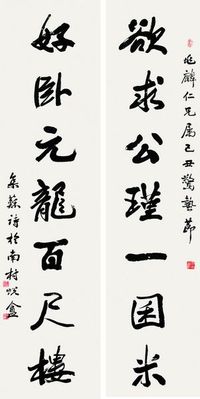 兆麟仁兄属己丑驚蟄節
欲求公瑾一囷米
好卧元龍百尺樓
集蘇詩於南村悦盦